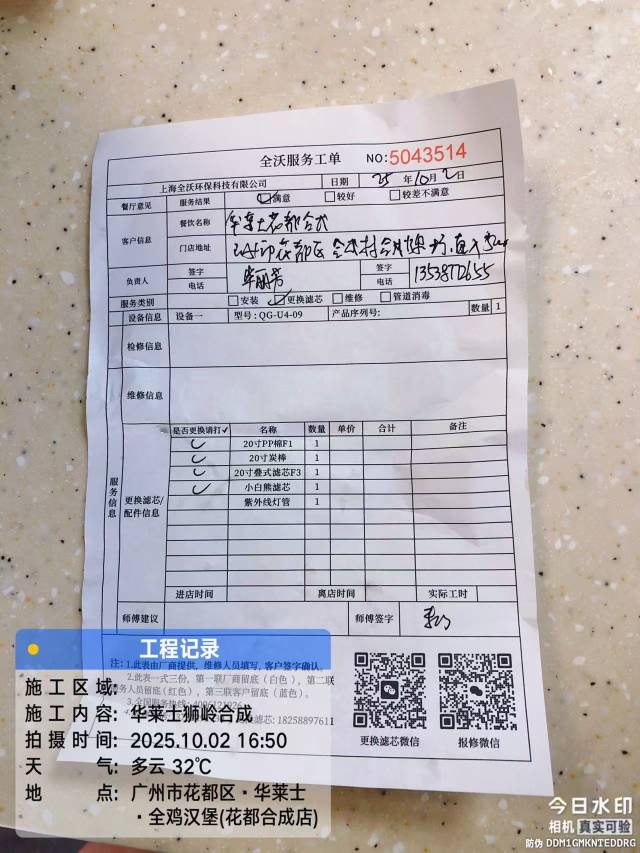 全沃服务工单 NO:5043514
上海全沃环保科技有限公司 日期 25年10月2日
餐厅意见 服务结果 满意 较好 较差不满意
客户信息 餐饮名称 华莱士花都合成
门店地址 花都区合成村
负责人 签字 电话 签字 电话
服务类别 安装 更换滤芯 维修 管道消毒
设备信息 设备一 型号:QG-U4-09 产品序列号: 数量 1
检修信息
维修信息
服务信息
更换滤芯/配件信息
是否更换请打✓ 名称 数量 单价 合计 备注
✓ 20寸PP棉F1 1
✓ 20寸炭棒 1
✓ 20寸叠式滤芯F3 1
✓ 小白熊滤芯 1
紫外线灯管 1
进店时间 离店时间 实际工时
师傅建议 师傅签字
注:1.此表由厂商提供,维修人员填写,客户签字确认。
2.此表一式三份,第一联厂商留底(白色),第二联
服务人员留底(红色),第三联客户留底(蓝色)。
3.全国服务热线:
滤芯:18258897611
更换滤芯微信 报修微信
工程记录
施工区域:
施工内容:华莱士狮岭合成
拍摄时间:2025.10.02 16:50
天气:多云 32℃
地点:广州市花都区·华莱士
·全鸡汉堡(花都合成店)
今日水印
相机 真实可验
防伪 DDM1GMKNTEDDRG